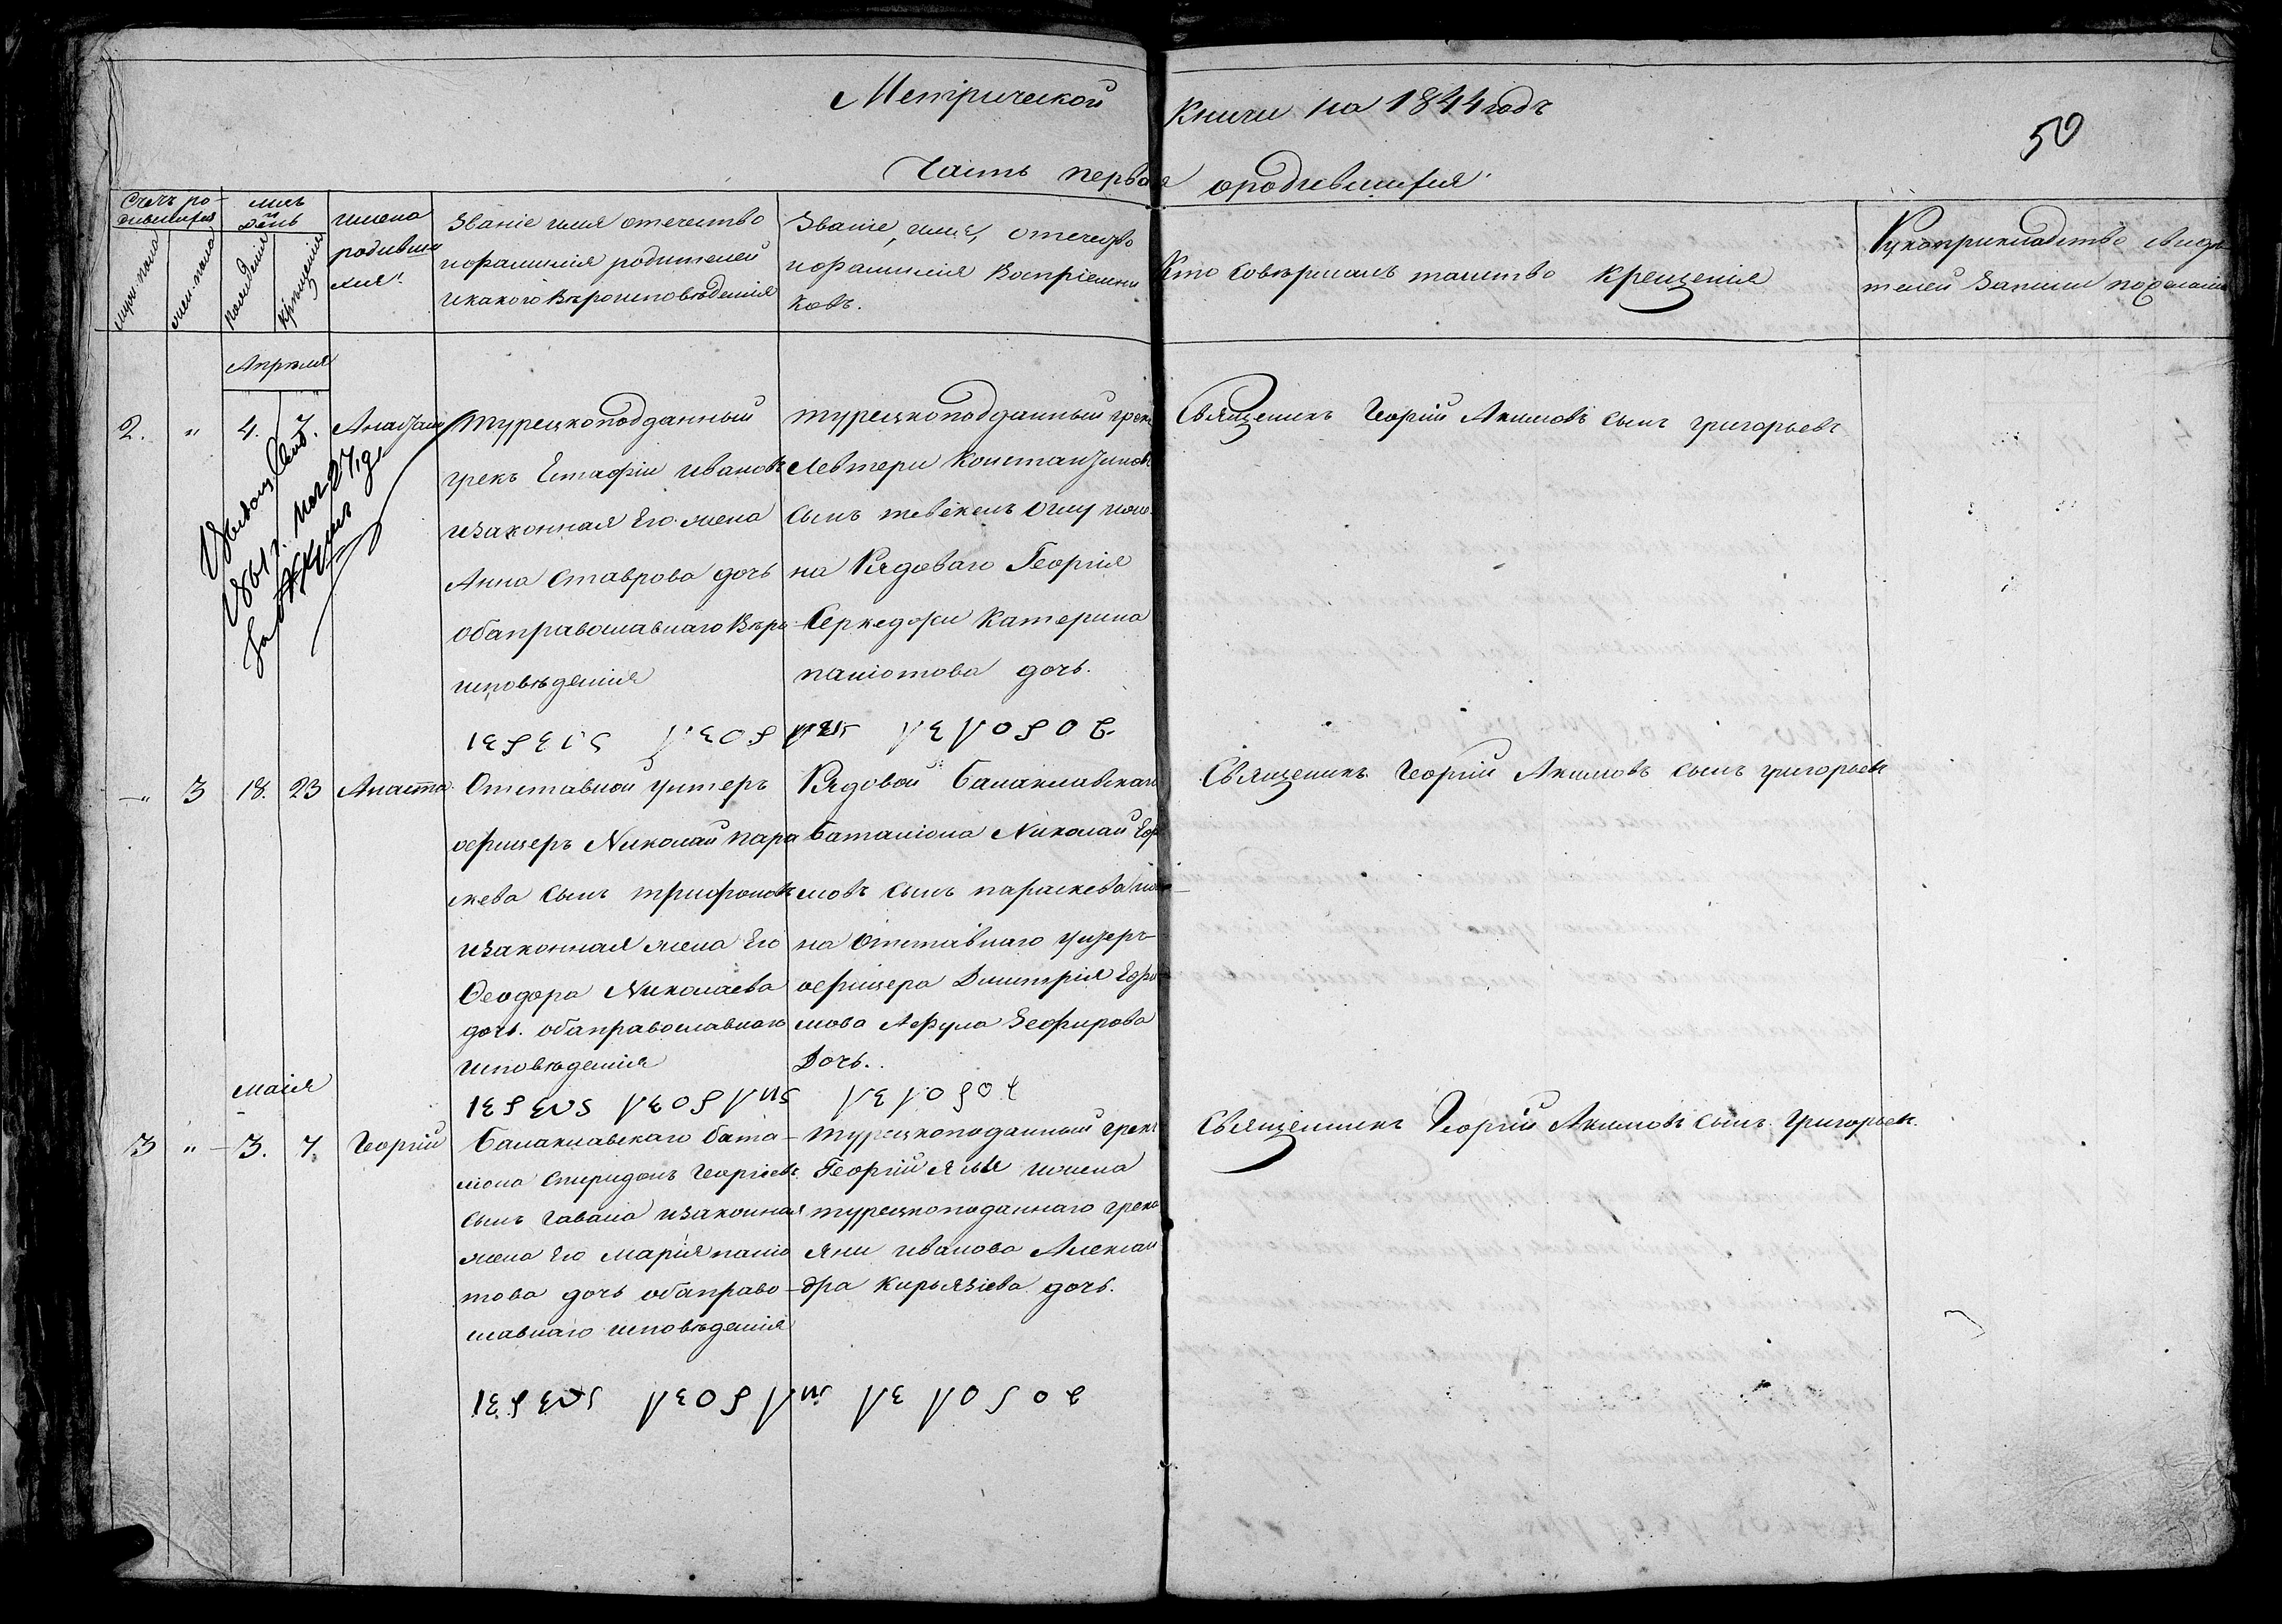 Метрической книги на 1844 годъ
50
Часть первая о родившихся
Счетъ ро-
дившихся
мужс. пола
жен. пола
день
рожденія
крещенія
имена
родивши
хся
Званіе имя отечество
и фамилія родителей
и какого вѣроисповѣденія
Званіе, имя, отечество
и фамилія Воспріемни
ковъ.
Кто совѣршалъ таинство крещенія
Рукоприкладство свидѣ
телей записи по желанію
Апрѣля
2. " 4. 7.
Турецкоподданный
грекъ Евстафіи Ивановъ
и законная его жена
Анна Ставрова дочь
оба православнаго вѣро
исповѣденія
турецкоподданный грекъ
Левтери Константиновъ
сынъ и же
на Рядоваго Георгія
Катерина
паніотова дочь.
Священикъ Георгіи Акимовъ сынъ григорьевъ
1861 г.
ιερευς
3 18. 23 Анаста.
Отставной унтеръ
офицеръ Николай пара
скева сынъ трифоновъ
и законная жена его
Феодора Николаева
дочь. оба православнаго
исповѣденія
Рядовой Балаклавскаго
баталіона Николай Ефи
мовъ сынъ параскева и же
на отставнаго унтеръ
офицера Дмитрія Ефи
мова Афула Зефирова
Дочь.
Священикъ Георгіи Акимовъ сынъ григорьевъ
ιερευς
маія
3 " 3. 7. Георгій
Балаклавскаго бата-
ліона Спиридонъ Георгіевъ
сынъ Гавала и законная
жена его Марія паніо
това дочь оба право-
славнаго исповѣденія
турецкоподанный грекъ
Георгій и жена
турецкоподаннаго грека
Яни Иванова Алексан
дра Кирьязіева дочь.
Священникъ Георгій Акимовъ сынъ Григорьев.
ιερευς